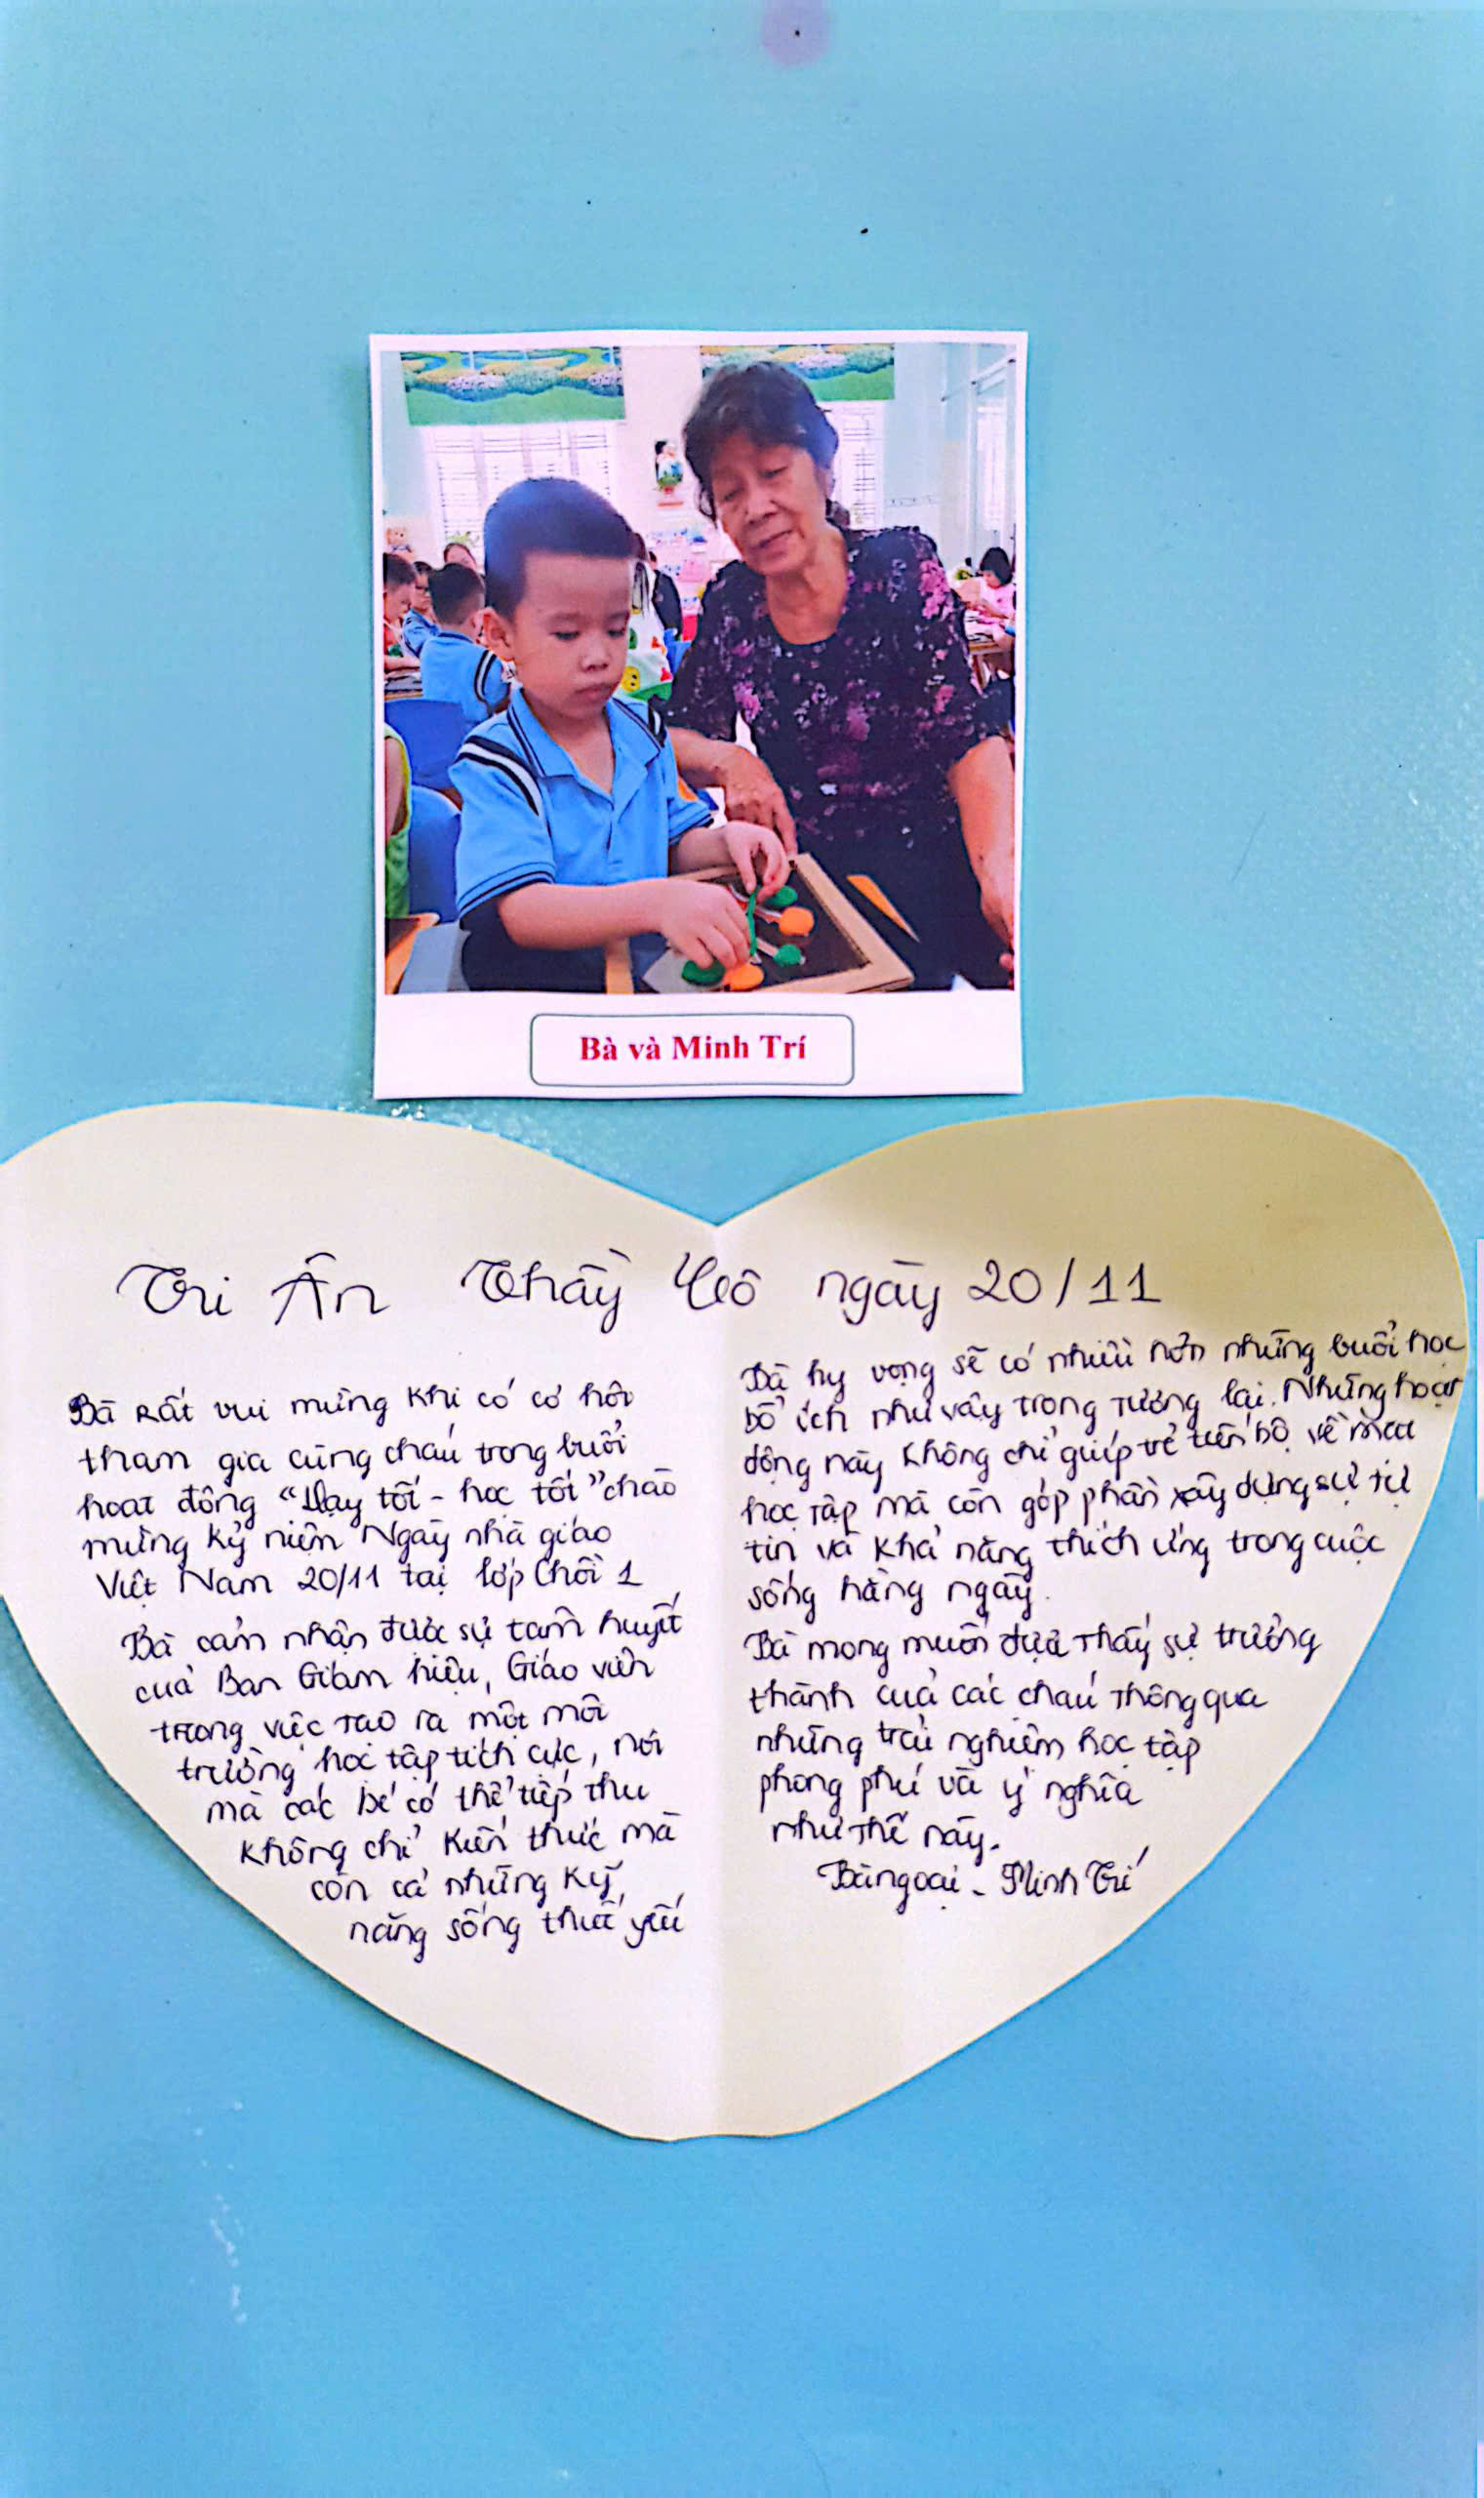 Bà và Minh Trí
Tri Ân Thầy Cô ngày 20/11
Bà rất vui mừng khi có cơ hội
tham gia cùng cháu trong buổi
hoạt động "Dạy tốt - học tốt" chào
mừng kỷ niệm Ngày nhà giáo
Việt Nam 20/11 tại lớp Chồi 1
Bà cảm nhận được sự tâm huyết
của Ban Giám hiệu, Giáo viên
trong việc tạo ra một môi
trường học tập tích cực, nơi
mà các bé có thể tiếp thu
không chỉ kiến thức mà
còn cả những kỹ
năng sống thiết yếu
Bà hy vọng sẽ có nhiều hơn những buổi học
bổ ích như vậy trong tương lai. Những hoạt
động này không chỉ giúp trẻ tiến bộ về mặt
học tập mà còn góp phần xây dựng sự tự
tin và khả năng thích ứng trong cuộc
sống hằng ngày.
Bà mong muốn được thấy sự trưởng
thành của các cháu thông qua
những trải nghiệm học tập
phong phú và ý nghĩa
như thế này.
Bà ngoại - Minh Trí